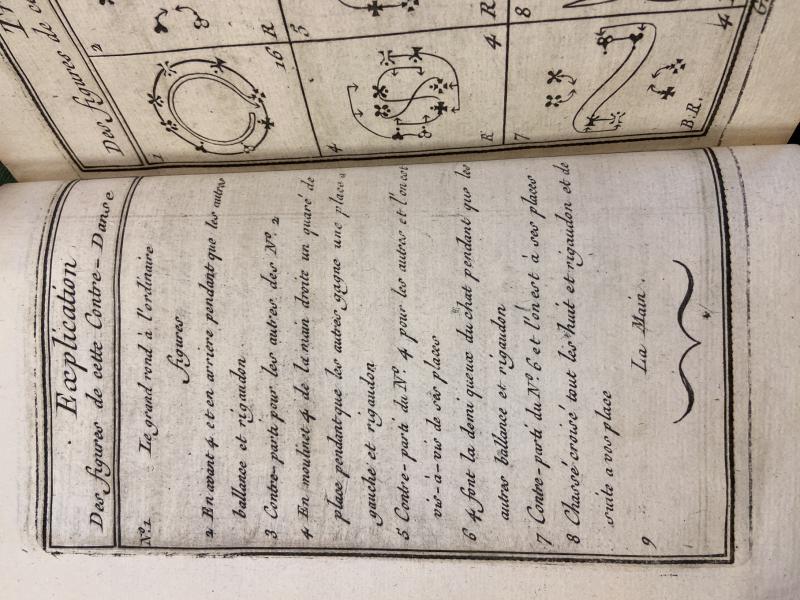 Explication
Des figures de cette Contre-Danse
Nº. 1 Le grand rond à l'ordinaire
figures
2 En avant 4 et en arriere pendant que les autres
ballance et rigaudon
3 Contre-parti pour les autres des Nº. 2
4 En moulinet 4 de la main droite un quaré de
place pendant que les autres gagne une place a
gauche et rigaudon
5 Contre-parti du Nº. 4 pour les autres et l'on est
vis-à-vis de ses places
6 4 font la demi queux du chat pendant que les
autres ballance et rigaudon
7 Contre-parti du Nº. 6 et l'on est à ses places
8 Chassé croisé tout les huit et rigaudon et de
suite a vos place
9 La Main.
Des figures de
1
16
2
R
3
R
4
4
E
7
B.R.
8
4